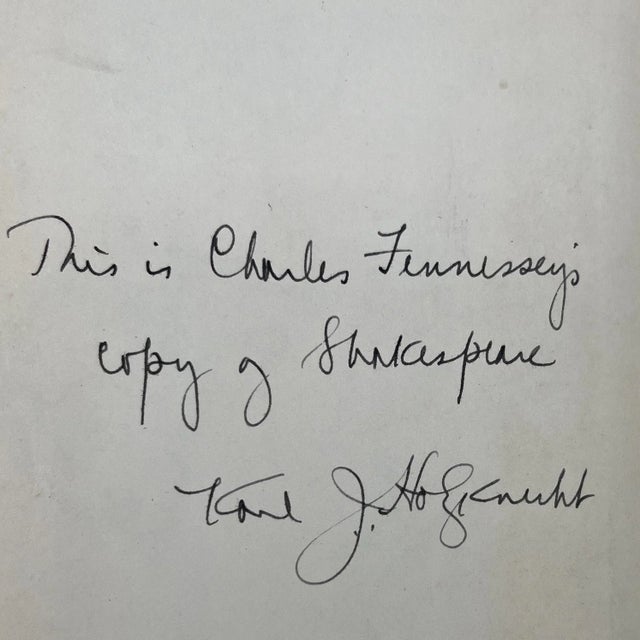 This is Charles Fennessey's
copy of Shakespeare
Karl J. Holzknecht